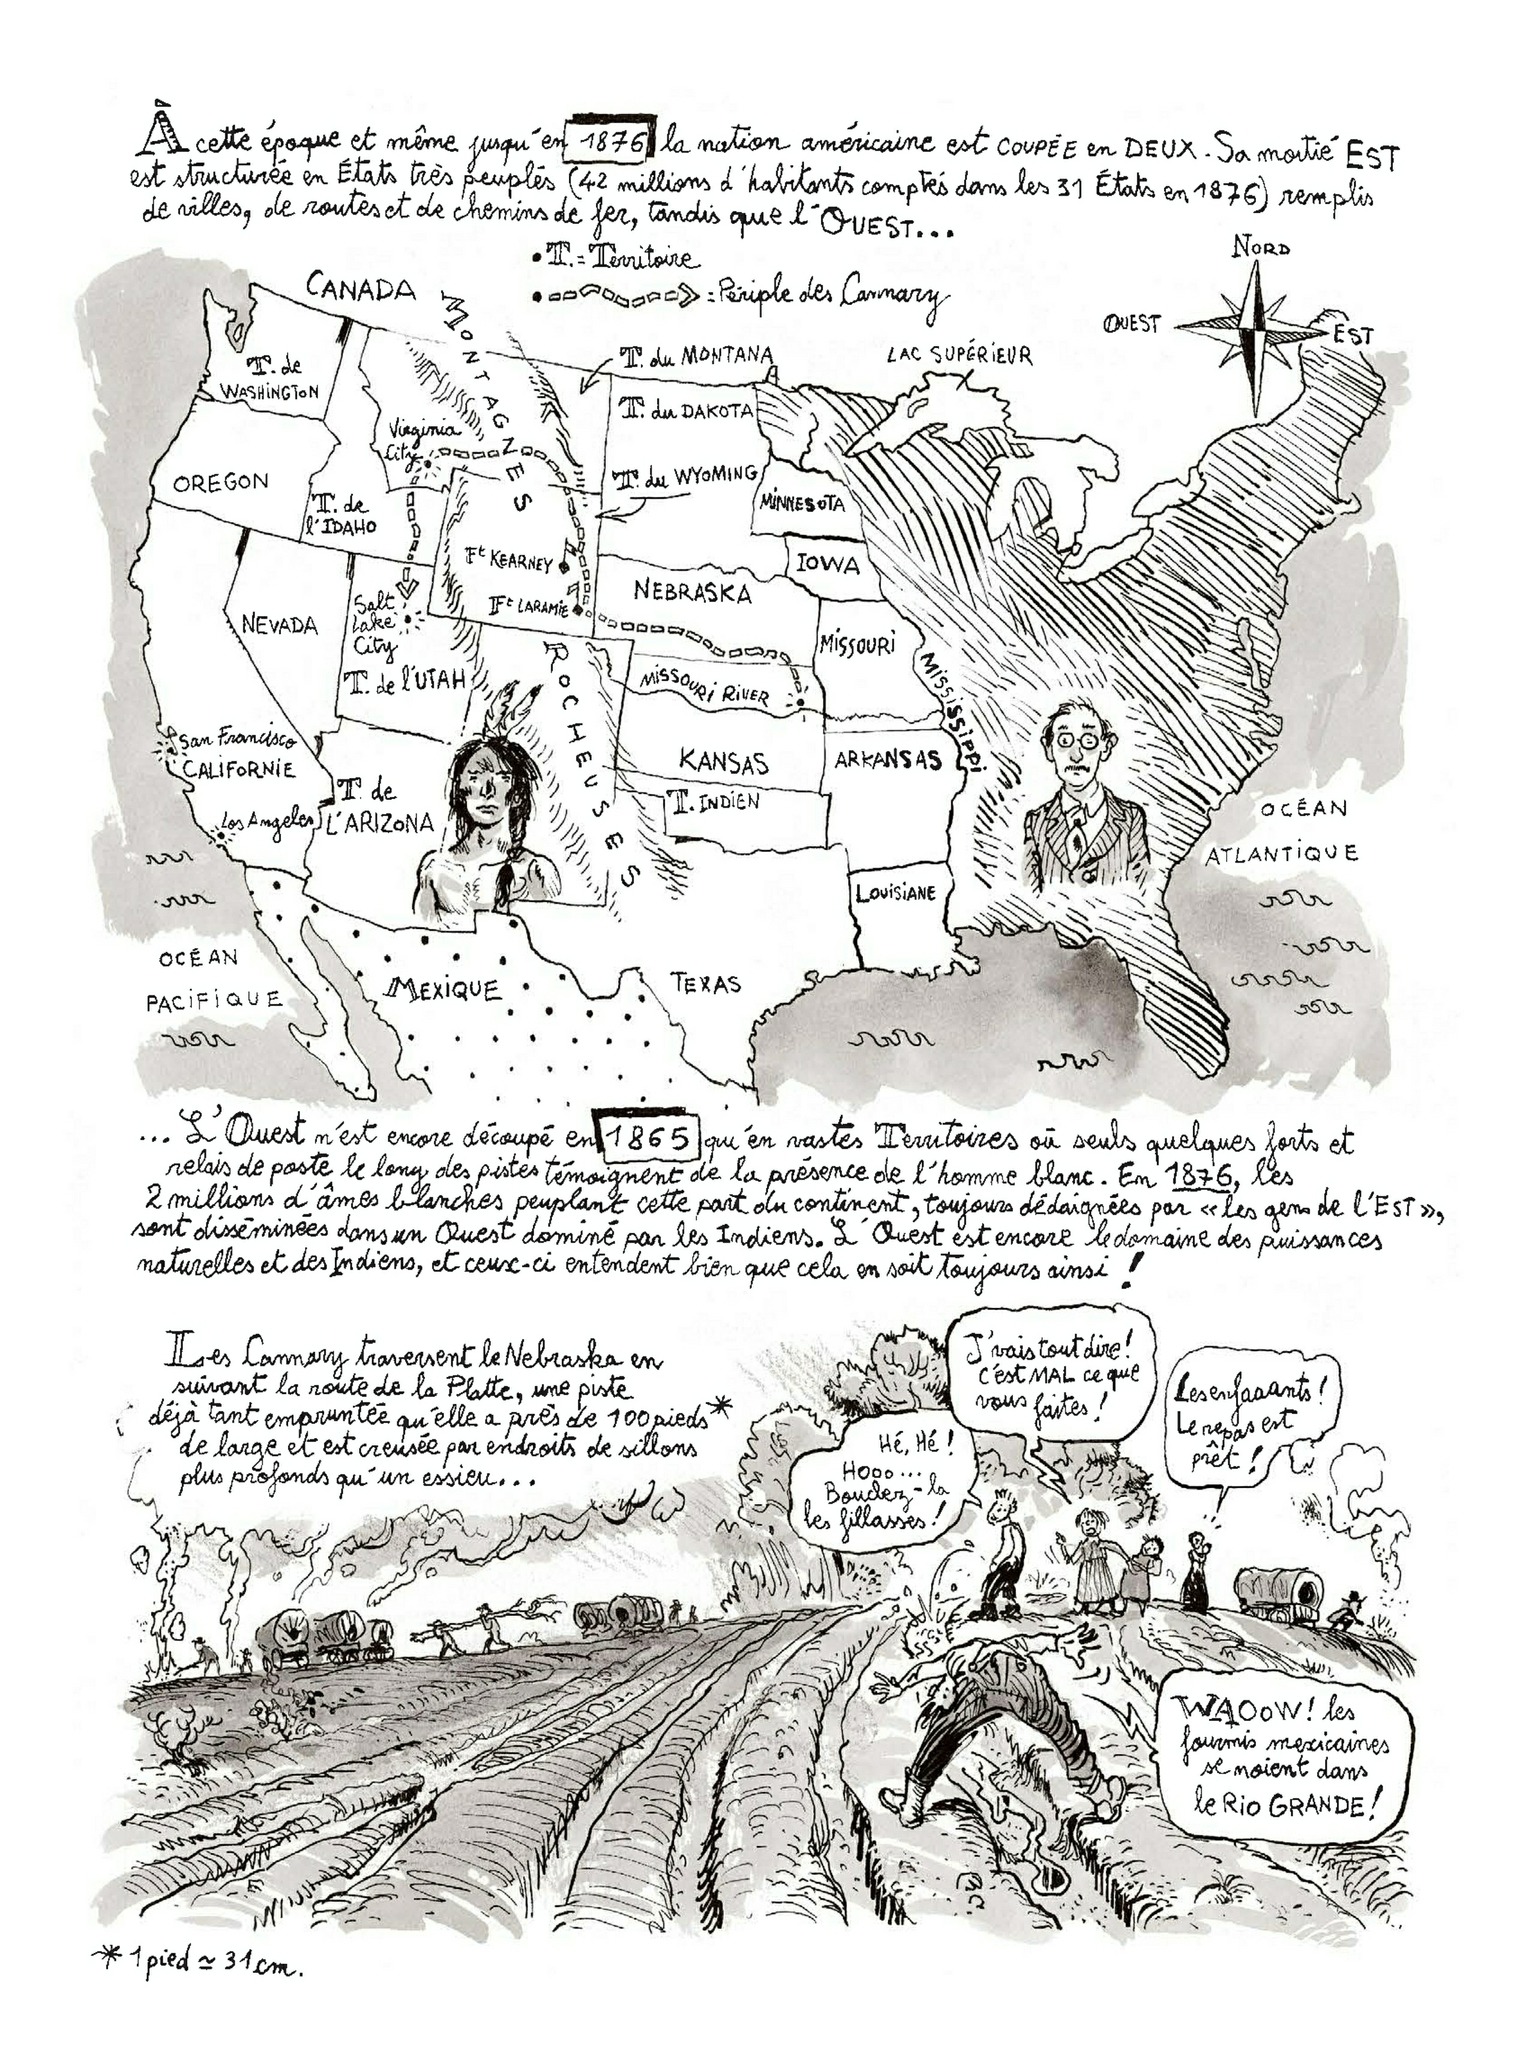 À cette époque et même jusqu'en 1876 la nation américaine est COUPÉE en DEUX. Sa moitié EST
est structurée en États très peuplés (42 millions d'habitants comptés dans les 31 États en 1876) remplis
de villes, de routes et de chemins de fer, tandis que l'OUEST...
• T. = Territoire
• = Périple des Cannary
NORD
OUEST
EST
CANADA
MONTAGNES
T. du MONTANA
LAC SUPÉRIEUR
T. de
WASHINGTON
T. du DAKOTA
Virginia
City
OREGON
T. du WYOMING
MINNESOTA
T. de
l'IDAHO
Ft KEARNEY
IOWA
NEBRASKA
Ft LARAMIE
Salt
Lake
City
NEVADA
MISSOURI
T. de l'UTAH
MISSOURI RIVER
MISSISSIPPI
ROCHEUSES
San Francisco
CALIFORNIE
KANSAS
ARKANSAS
T. de
L'ARIZONA
T. INDIEN
Los Angeles
OCÉAN
ATLANTIQUE
LOUISIANE
OCÉAN
PACIFIQUE
MEXIQUE
TEXAS
... L'Ouest n'est encore découpé en 1865 qu'en vastes Territoires où seuls quelques forts et
relais de poste le long des pistes témoignent de la présence de l'homme blanc. En 1876, les
2 millions d'âmes blanches peuplant cette part du continent, toujours dédaignées par « les gens de l'EST »,
sont disséminées dans un Ouest dominé par les Indiens. L'Ouest est encore le domaine des puissances
naturelles et des Indiens, et ceux-ci entendent bien que cela en soit toujours ainsi !
Les Cannary traversent le Nebraska en
suivant la route de la Platte, une piste
déjà tant empruntée qu'elle a près de 100 pieds*
de large et est creusée par endroits de sillons
plus profonds qu'un essieu...
J'vais tout dire !
c'est MAL ce que
vous faites !
Les enfaaants !
Le repas est
prêt !
Hé, Hé !
Hooo...
Bouclez-la
les fillasses !
WAOoW ! les
fourmis mexicaines
se noient dans
le RIO GRANDE !
* 1 pied ≃ 31 cm.